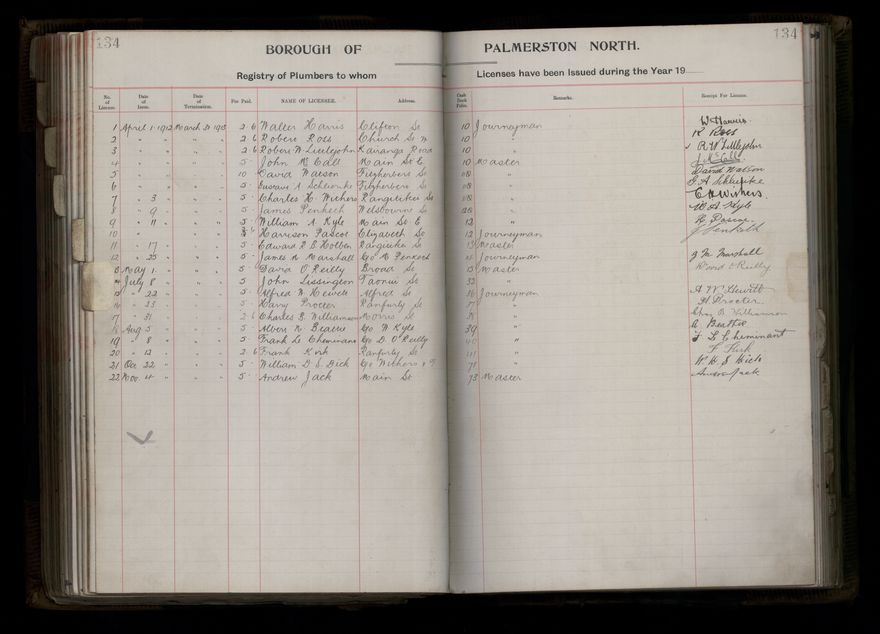 134 134
BOROUGH OF PALMERSTON NORTH.
Registry of Plumbers to whom Licenses have been Issued during the Year 19
No. of License. Date of Issue. Date of Termination. Fee Paid. NAME OF LICENSEE. Address. Cash Book Folio. Remarks. Receipt For License.
1 April 1 1912 March 31 1913 2 6 Walter Harris Clifton St 10 Journeyman W Harris
2 " " " " 2 6 Robert Ross Church St W 10 " R Ross
3 " " " " 2 6 Robert W. Littlejohn Kairanga Road 10 " R W Littlejohn
4 " " " " 5 - John McCall Main St E 10 Master J McCall
5 " " " " 10 David Watson Fitzherbert St " David Watson
6 " " " " 5 - Gustave A Schleinke Fitzherbert St " G A Schleinke
7 " 3 " " 5 - Charles H. Withers Rangitikei St " C H Withers
8 " 9 " " 5 - James Penketh Melbourne St "
9 " 11 " " 5 - William A Kyle Main St E 12 " W A Kyle
10 " " " " 2 6 Harrison Pascoe Elizabeth St 12 Journeyman H Pascoe
11 " 17 " " 5 - Edward R B Holben Rangitikei St 13 Master J Penketh
12 " 25 " " 5 - James Marshall C/o Penketh Journeyman J M Marshall
13 May 1 " " 5 David O'Reilly Broad St 15 Master David O'Reilly
14 July 8 " " 5 John Lissington Taonui St 33 "
15 " 22 " " 5 Alfred W Hewitt Alfred St 36 Journeyman A W Hewitt
16 " 23 " " 5 - Harry Procter Ranfurly St " H Procter
17 " 31 " " 2 6 Charles B. Williamson Morris St " Chas B Williamson
18 Aug 5 " " 5 - Albert Beattie C/o W Kyle 39 " A Beattie
19 " 8 " " 5 - Frank Le Cheminant C/o D. O'Reilly 40 " F Le Cheminant
20 " 12 " " 2 6 Frank Kirk Ranfurly St 41 " F Kirk
21 Oct 22 " " 5 - William D S. Dick C/o Withers 71 "
22 Nov. 4 " " 5 - Andrew Jack Main St 73 Master Andrew Jack